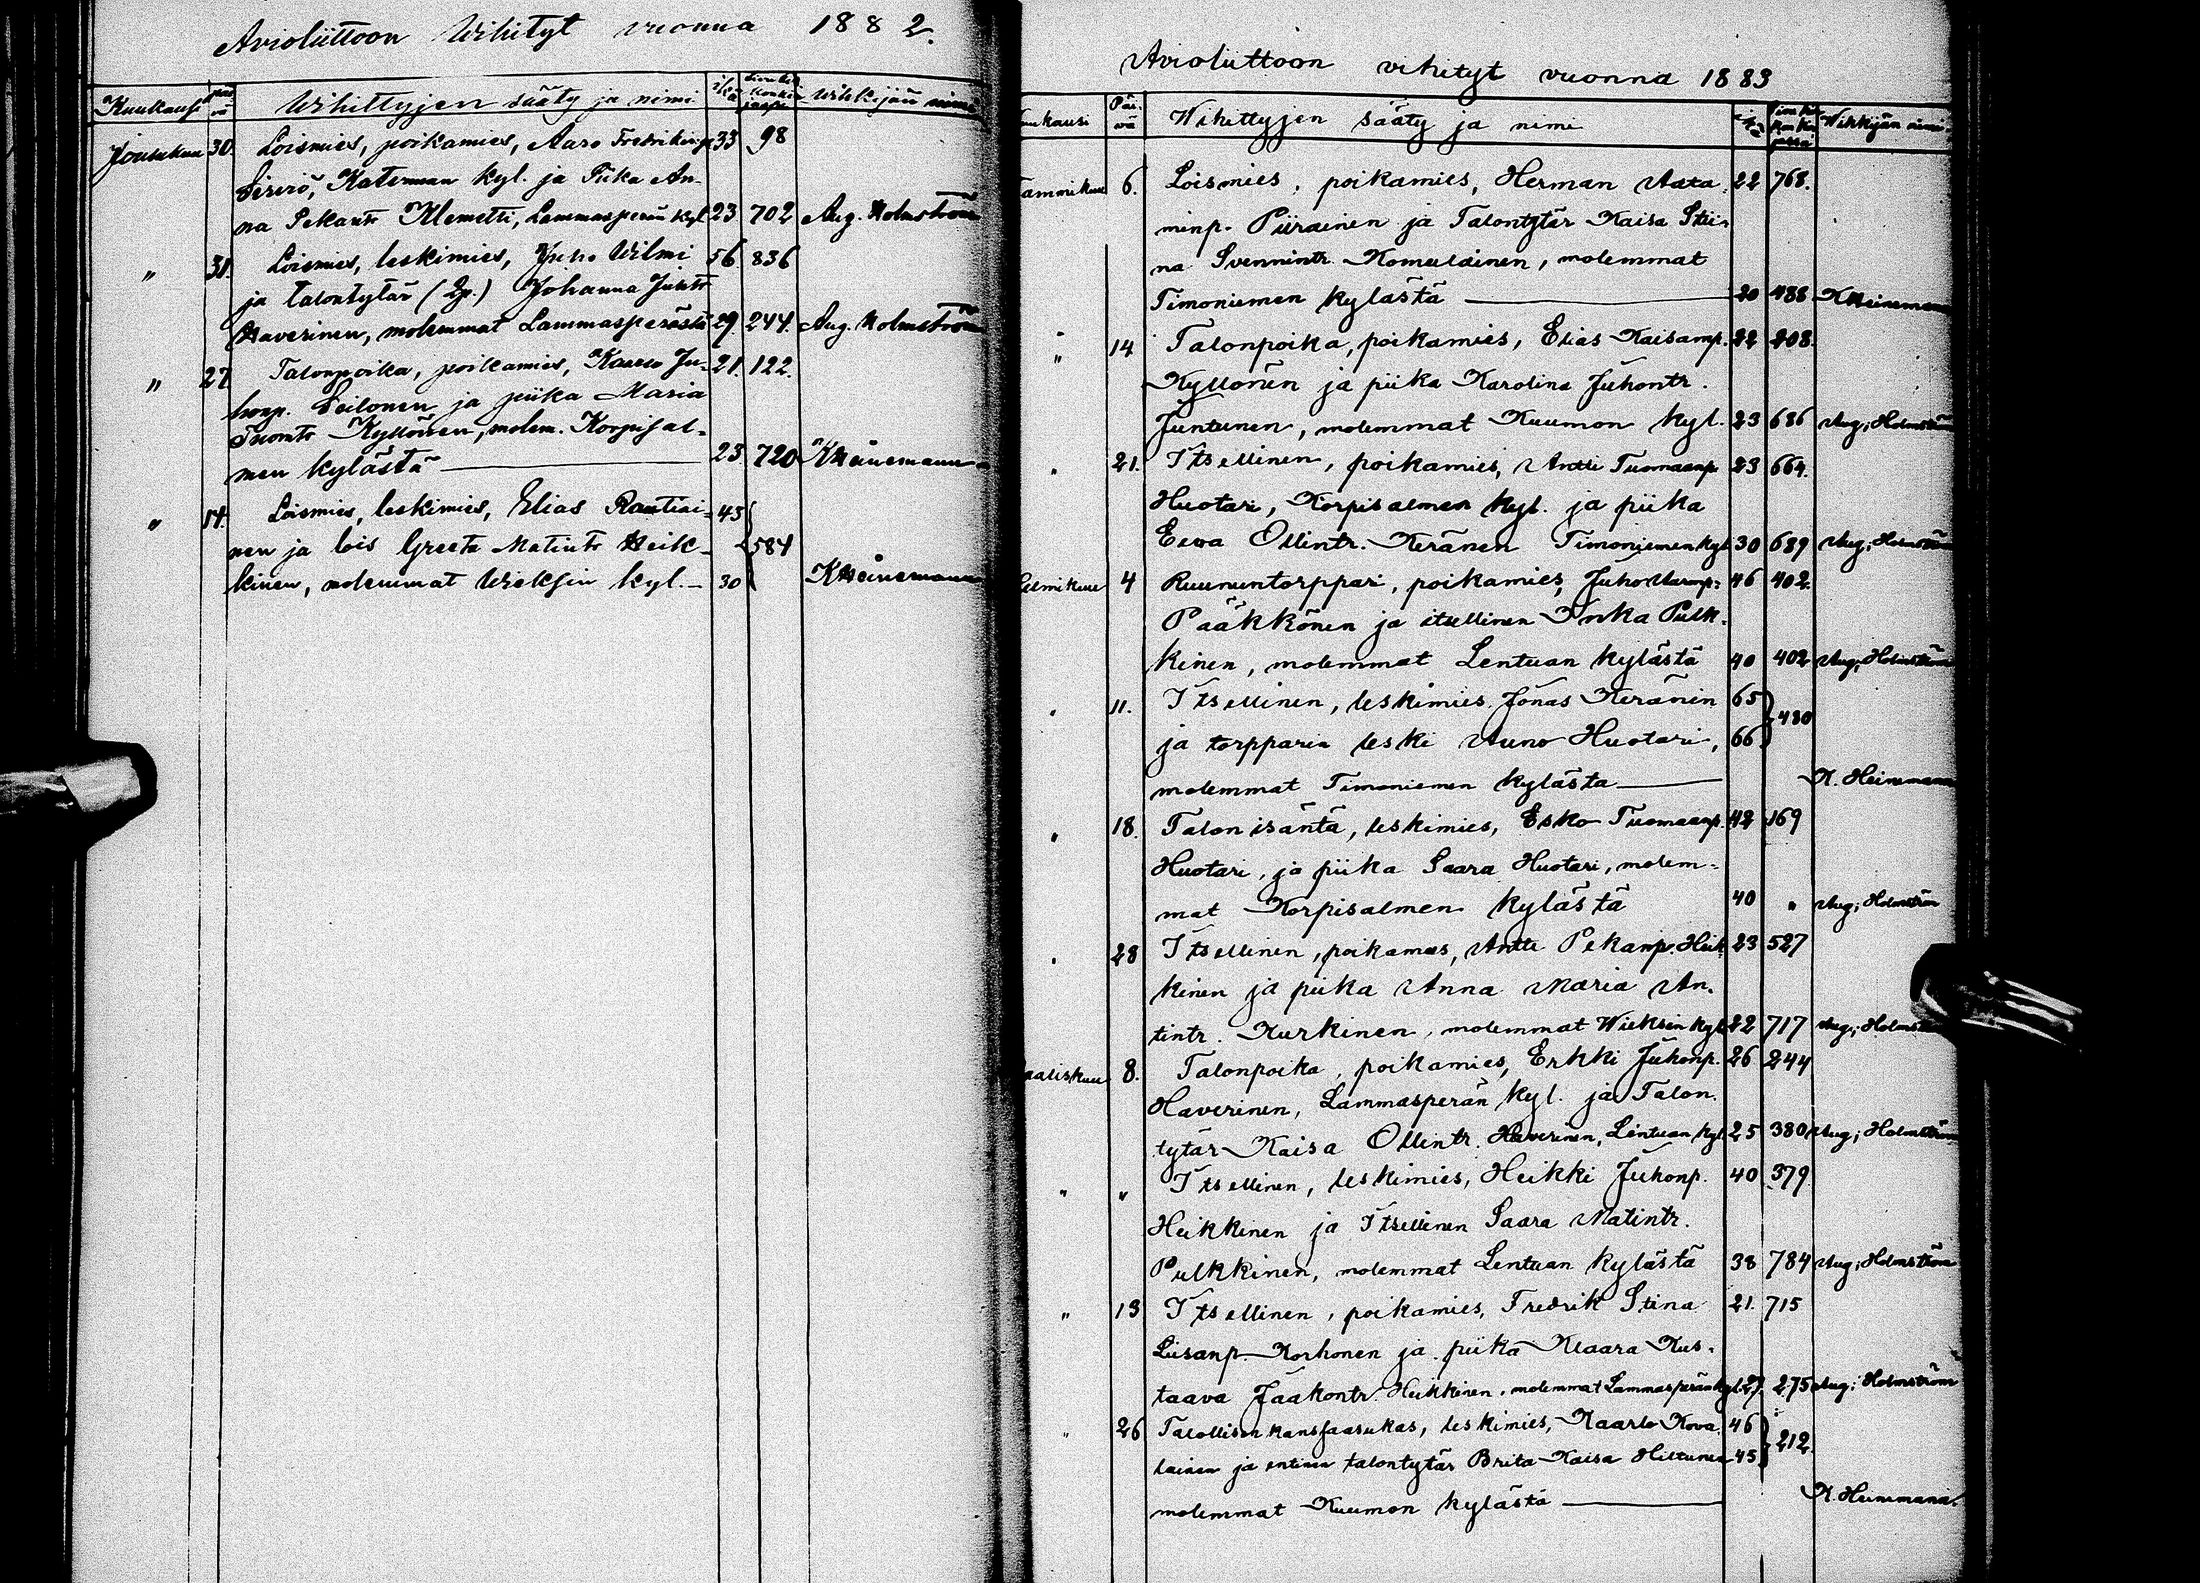 Avioliittoon Wihityt vuonna 1882.
Kuukausi päivä Wihittyjen sääty ja nimi ikä Wihkijän nimi
Joulukuu 30. Loismies, poikamies, Aaro Fredrikinp. 33 98
Sirviö, Katerman kyl. ja Piika An-
na Pekantr Klemetti, Lammasperän kyl. 23 702 Aug. Holmström
" 31. Loismies, leskimies, Juho Wilmi 56 836
ja talontytär (2p.) Johanna Juhtr
Haverinen, molemmat Lammasperästä 29. 244. Aug. Holmström
" 27 Talonpoika, poikamies, Kaarlo Ju- 21. 122.
honp. Seilonen ja piika Maria
Tuomtr Kyllönen, molem. Korpisal-
men kylästä 23 720 K Heinemann
" 14. Loismies, leskimies, Elias Rautiai- 45
nen ja lois Greeta Matintr Heik- 584
kinen, molemmat Wieksin kyl. 30 K Heinemann
Avioliittoon vihityt vuonna 1883
kausi Päi-
wä Wihittyjen sääty ja nimi Wihkijän nimi
Tammikuu 6. Loismies, poikamies, Herman Aata- 22 768.
minp. Piirainen ja Talontytär Kaisa Stii-
na Svennintr. Komulainen, molemmat
Timoniemen kylästä 20 488 K Heinemann
" 14 Talonpoika, poikamies, Elias Kaisanp. 22 208.
Kyllönen ja piika Karolina Juhontr.
Juntunen, molemmat Kuumon kyl. 23 686 Aug; Holmström
" 21. Itsellinen, poikamies, Antti Tuomaanp. 23 664.
Huotari, Korpisalmen kyl. ja piika
Eewa Ollintr. Keränen Timoniemen kyl 30 689 Aug; Holmström
Helmikuu 4 Ruununtorppari, poikamies, Juho 46 402.
Pääkkönen ja itsellinen Inka Pulk-
kinen, molemmat Lentuan kylästä 40 402 Aug; Holmström
" 11. Itsellinen, leskimies Jonas Keränen 65
480
ja torpparin leski Auno Huotari, 66
molemmat Timoniemen kylästa K. Heinemann
" 18. Talon isäntä, leskimies, Esko Tuomaanp. 42 169
Huotari, ja piika Saara Huotari, molem-
mat Korpisalmen kylästä 40 " Aug; Holmström
" 28 Itsellinen, poikamies, Antti Pekanp. Heik- 23 527
kinen ja piika Anna Maria An-
tintr. Kurkinen, molemmat Wieksin kyl 22 717 Aug; Holmström
Maaliskuu 8. Talonpoika, poikamies, Erkki Juhonp. 26 244
Haverinen, Lammasperän kyl. ja Talon-
tytär Kaisa Ollintr. Haverinen, Lentuan kyl. 25 380 Aug; Holmström
" " Itsellinen, leskimies, Heikki Juhonp. 40 379.
Heikkinen ja Itsellinen Saara Matintr.
Pulkkinen, molemmat Lentuan kylästä 38 784 Aug; Holmström
" 13 Itsellinen, poikamies, Fredrik Stina 21. 715
Liisanp. Korhonen ja piika Klaara Kus-
taava Jaakontr. Heikkinen, molemmat Lammasperän kyl. 27. 275 Aug; Holmström
" 26 Talollisen kansaasukas, leskimies, Kaarlo Kova- 46
212.
lainen ja entinen talontytär Brita Kaisa Hiltunen 45
molemmat Kuumon kylästä K. Heinemann.